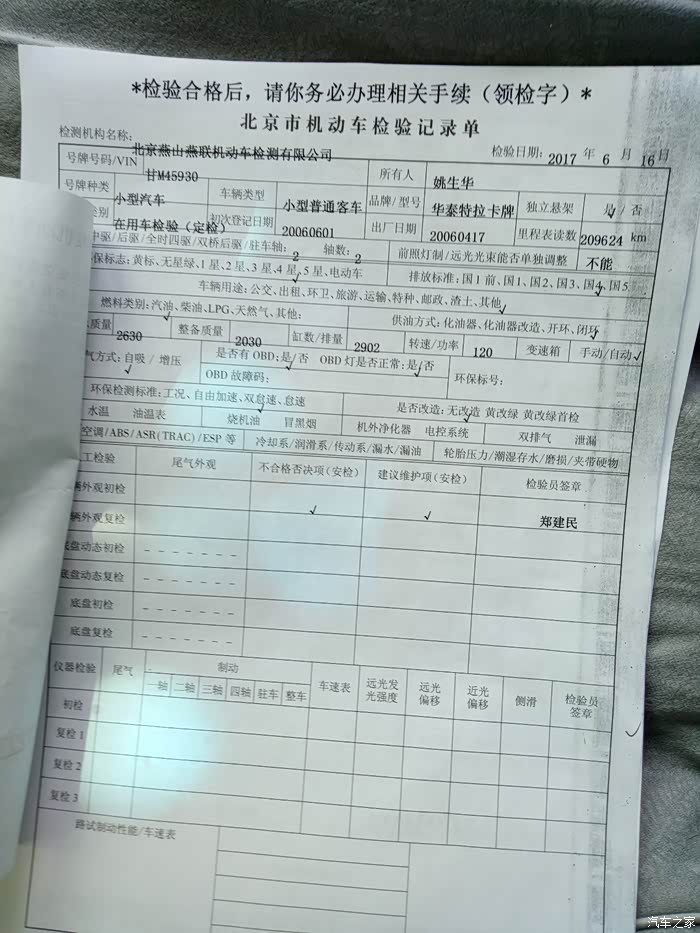 *检验合格后，请你务必办理相关手续（领检字）*
北京市机动车检验记录单
检测机构名称：北京燕山燕联机动车检测有限公司 检验日期：2017 年 6 月 16 日
号牌号码/VIN 甘M45930 所有人 姚生华
号牌种类 小型汽车 车辆类型 小型普通客车 品牌/型号 华泰特拉卡牌 独立悬架 是/否
类别 在用车检验（定检） 初次登记日期 20060601 出厂日期 20060417 里程表读数 209624 km
中驱/后驱/全时四驱/双桥后驱/驻车轴：2 轴数：2 前照灯制/远光光束能否单独调整 不能
环保标志：黄标、无星绿、1星、2星、3星、4星、5星、电动车 排放标准：国1前、国1、国2、国3、国4、国5
车辆用途：公交、出租、环卫、旅游、运输、特种、邮政、渣土、其他
燃料类别：汽油、柴油、LPG、天然气、其他： 供油方式：化油器、化油器改造、开环、闭环
质量 2630 整备质量 2030 缸数/排量 2902 转速/功率 120 变速箱 手动/自动
气方式：自吸/增压 是否有OBD：是/否 OBD灯是否正常：是/否 环保标号：
OBD故障码：
环保检测标准：工况、自由加速、双怠速、怠速 是否改造：无改造 黄改绿 黄改绿首检
水温 油温表 烧机油 冒黑烟 机外净化器 电控系统 双排气 泄漏
空调/ABS/ASR(TRAC)/ESP等 冷却系/润滑系/传动系/漏水/漏油 轮胎压力/潮湿存水/磨损/夹带硬物
工检验 尾气外观 不合格否决项（安检） 建议维护项（安检） 检验员签章
辆外观初检 ✓ ✓ 郑建民
辆外观复检
底盘动态初检 - - - - - - -
底盘动态复检 - - - - - - -
底盘初检 - - - - - - -
底盘复检 - - - - - - -
仪器检验 尾气 制动 车速表 远光发光强度 远光偏移 近光偏移 侧滑 检验员签章
一轴 二轴 三轴 四轴 驻车 整车
初检
复检1
复检2
复检3
路试制动性能/车速表
汽车之家